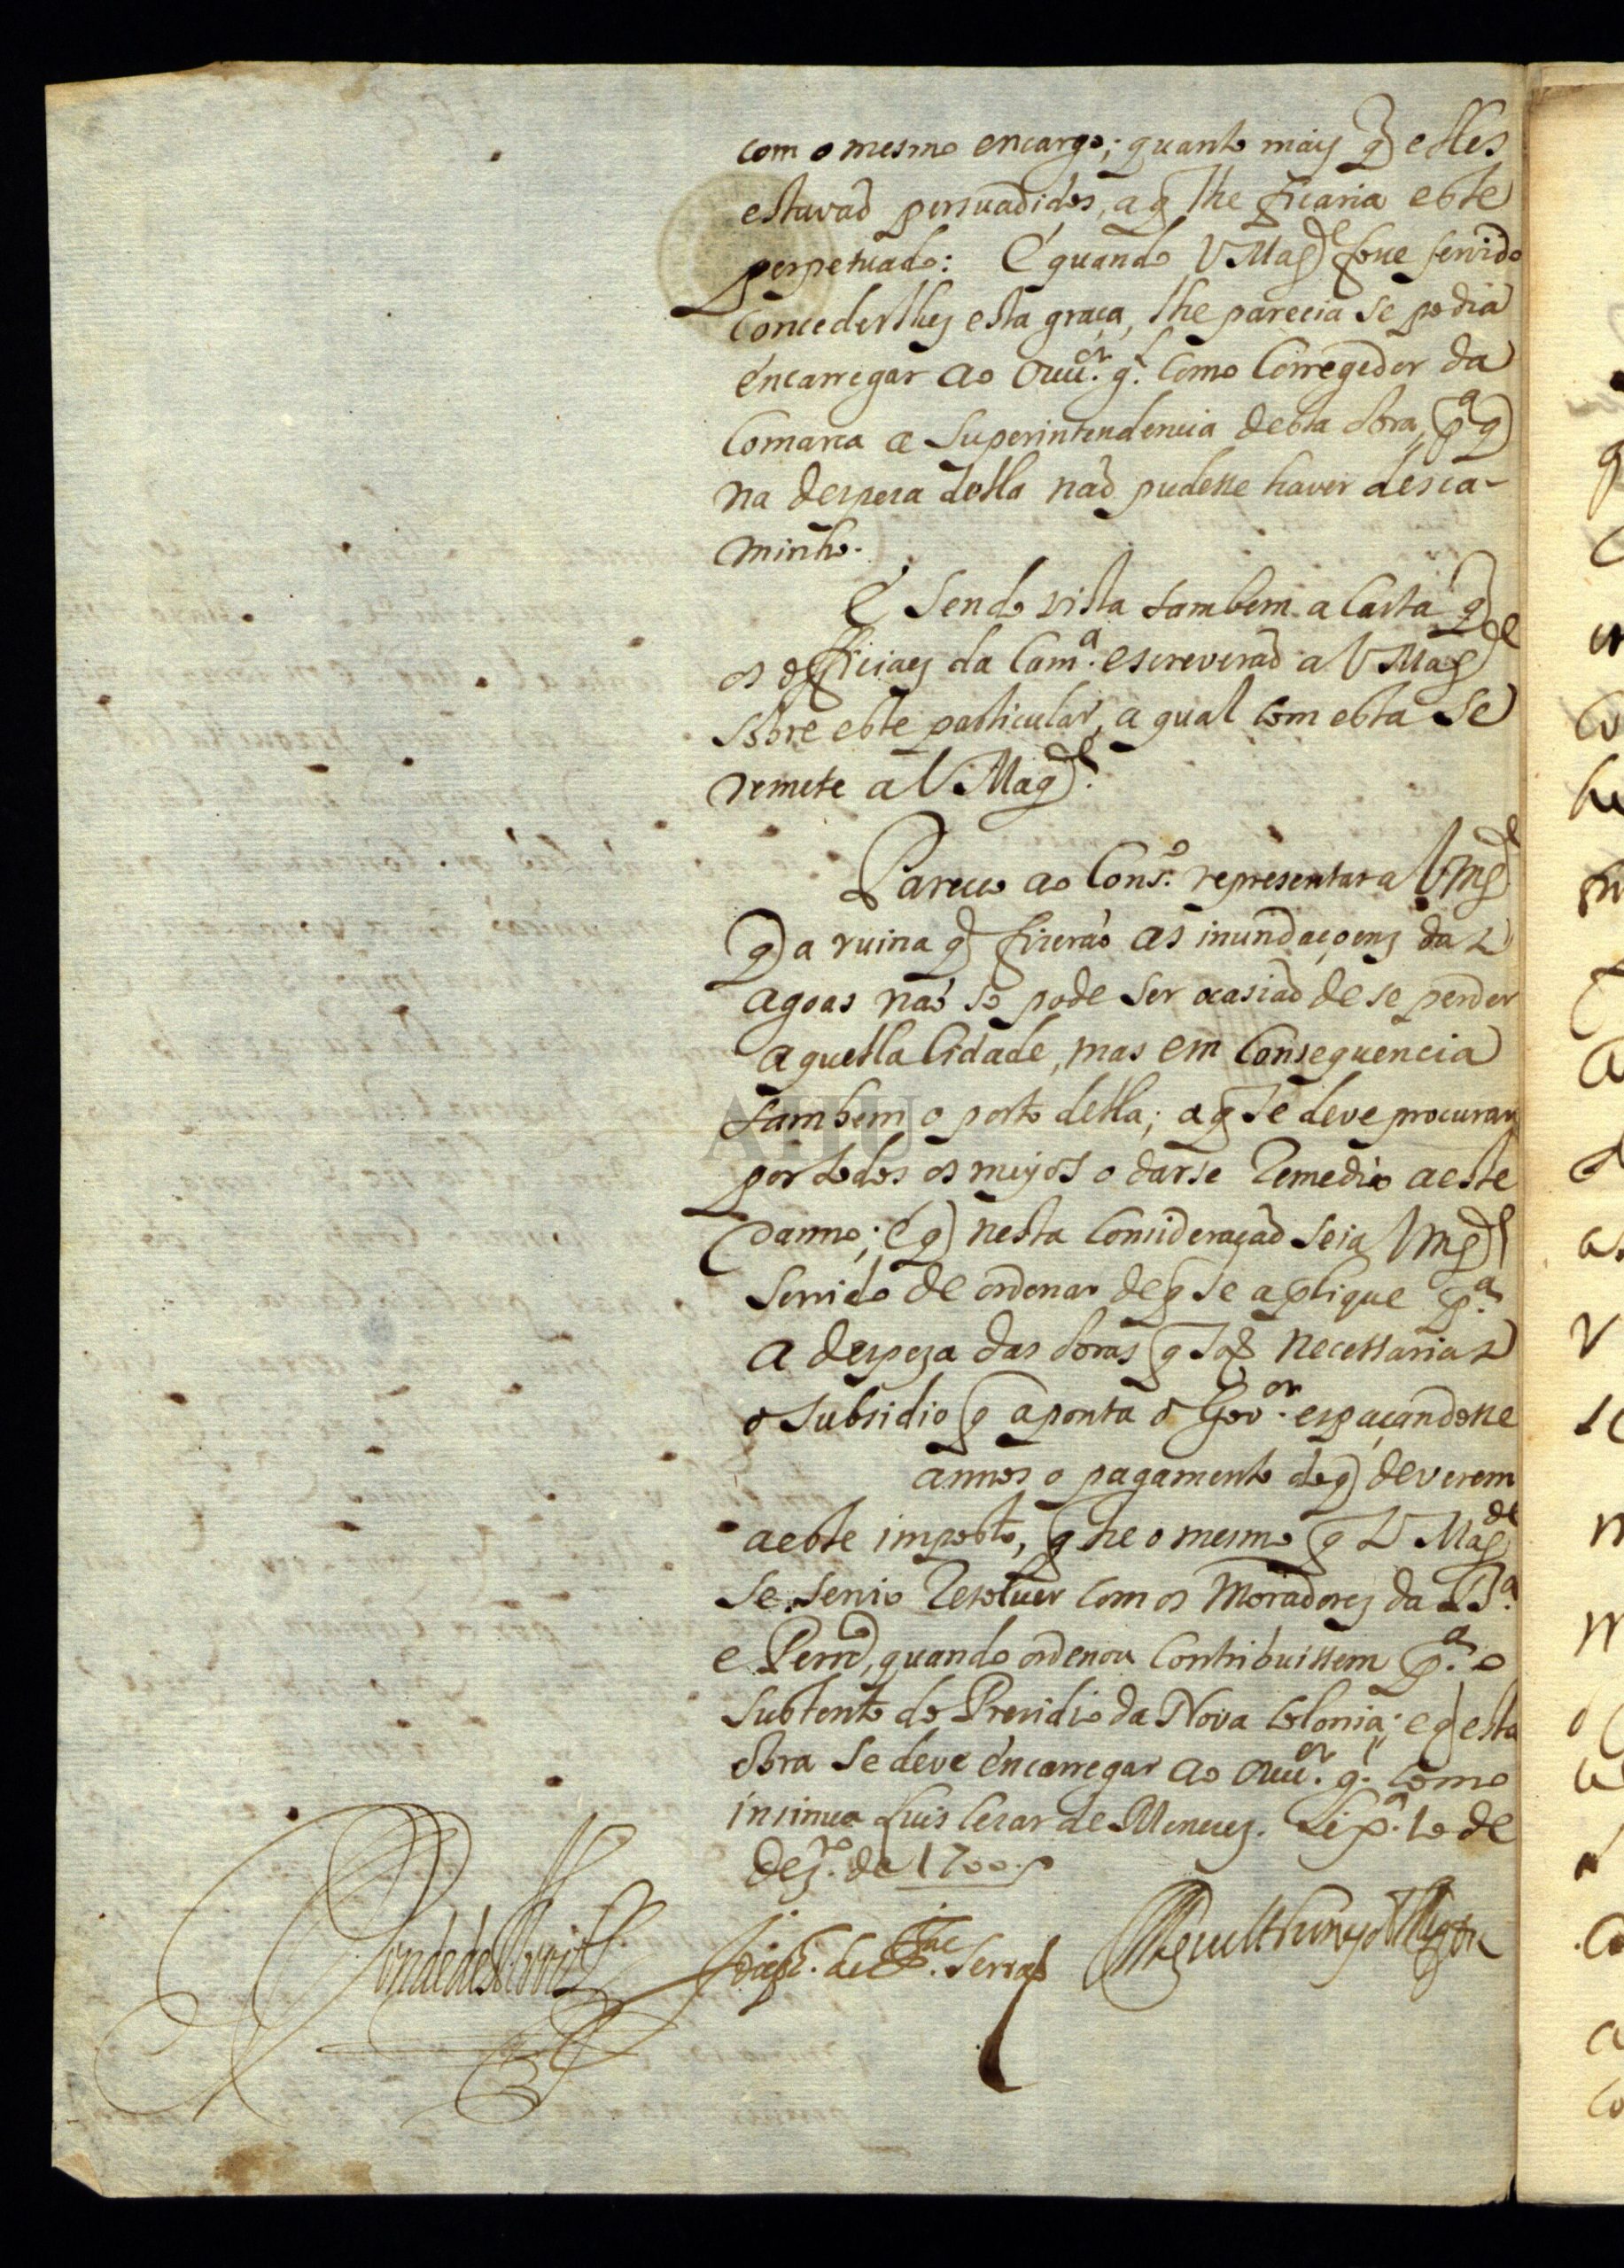 com o mesmo encargo; quanto mais q̃ elles
estavaõ persuadidos, a q̃ lhe ficaria este
perpetuado: E quando V Mag.de fosse servido
concederlhes esta graça, lhe parecia se podia
encarregar ao Ouu.or g.l como Corregedor da
Comarca a Superintendencia desta obra, p.a q̃
na despesa della naõ pudesse haver desca-
minho.
E sendo vista tambem a Carta q̃
os officiaes da Cam.a escreveraõ a V Mag.de
sobre este particular, a qual com esta se
remete a V Mag.de
Pareceo ao Cons.o representar a V Mg.de
q̃ a ruina q̃ fizeraõ as inundaçoens das
agoas naõ só pode ser ocasiaõ de se perder
aquella Cidade, mas em consequencia
tambem o porto della; a q̃ se deve procurar
por todos os meyos o darse remedio a este
danno; e q̃ nesta consideraçaõ seja V Mg.de
servido de ordenar de q̃ se aplique p.a
a despeza das obras q̃ saõ necessarias
o subsidio q̃ aponta o Gov.or espaçandosse
annos o pagamento do q̃ deverem
a este imposto, q̃ he o mesmo q̃ V Mag.de
se servio resoluer com os moradores da B.a
e Pern.co, quando ordenou contribuissem p.a o
sustento do Presidio da Nova Colonia; e q̃ esta
obra se deve encarregar ao Ouu.or g.l como
insinua Luis Cesar de Menezes. Lix.a 10 de
Dez.ro de 1700
Conde de Alvor
Joseph de Serrão
AHU